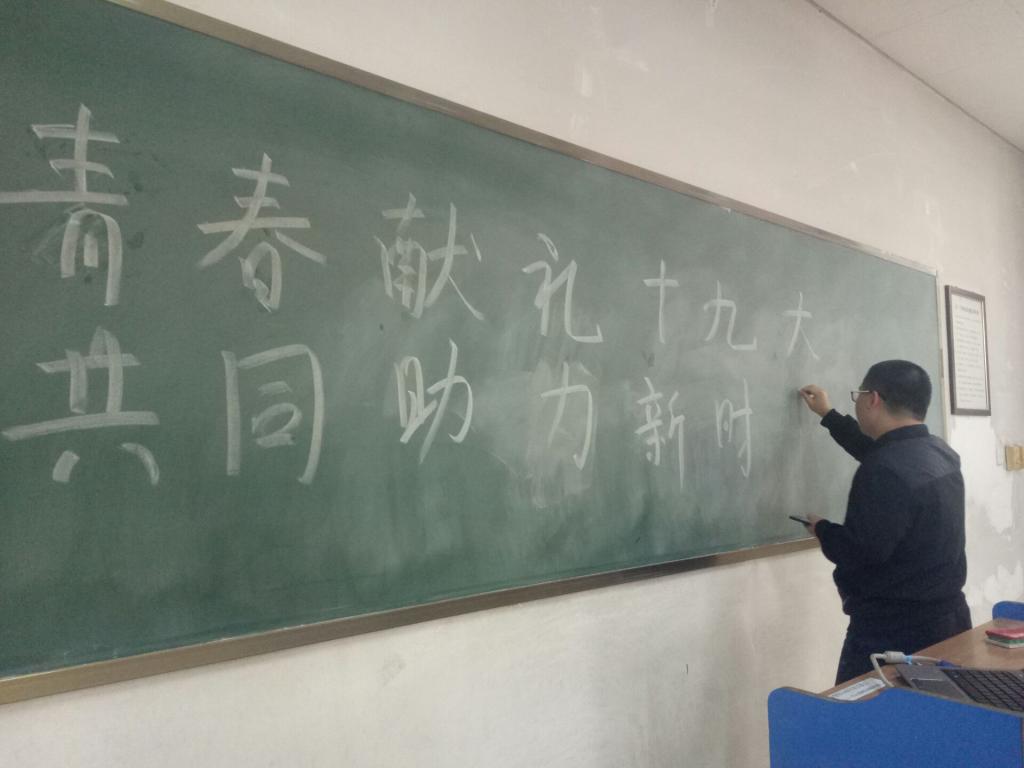 青春献礼十九大
共同助力新时